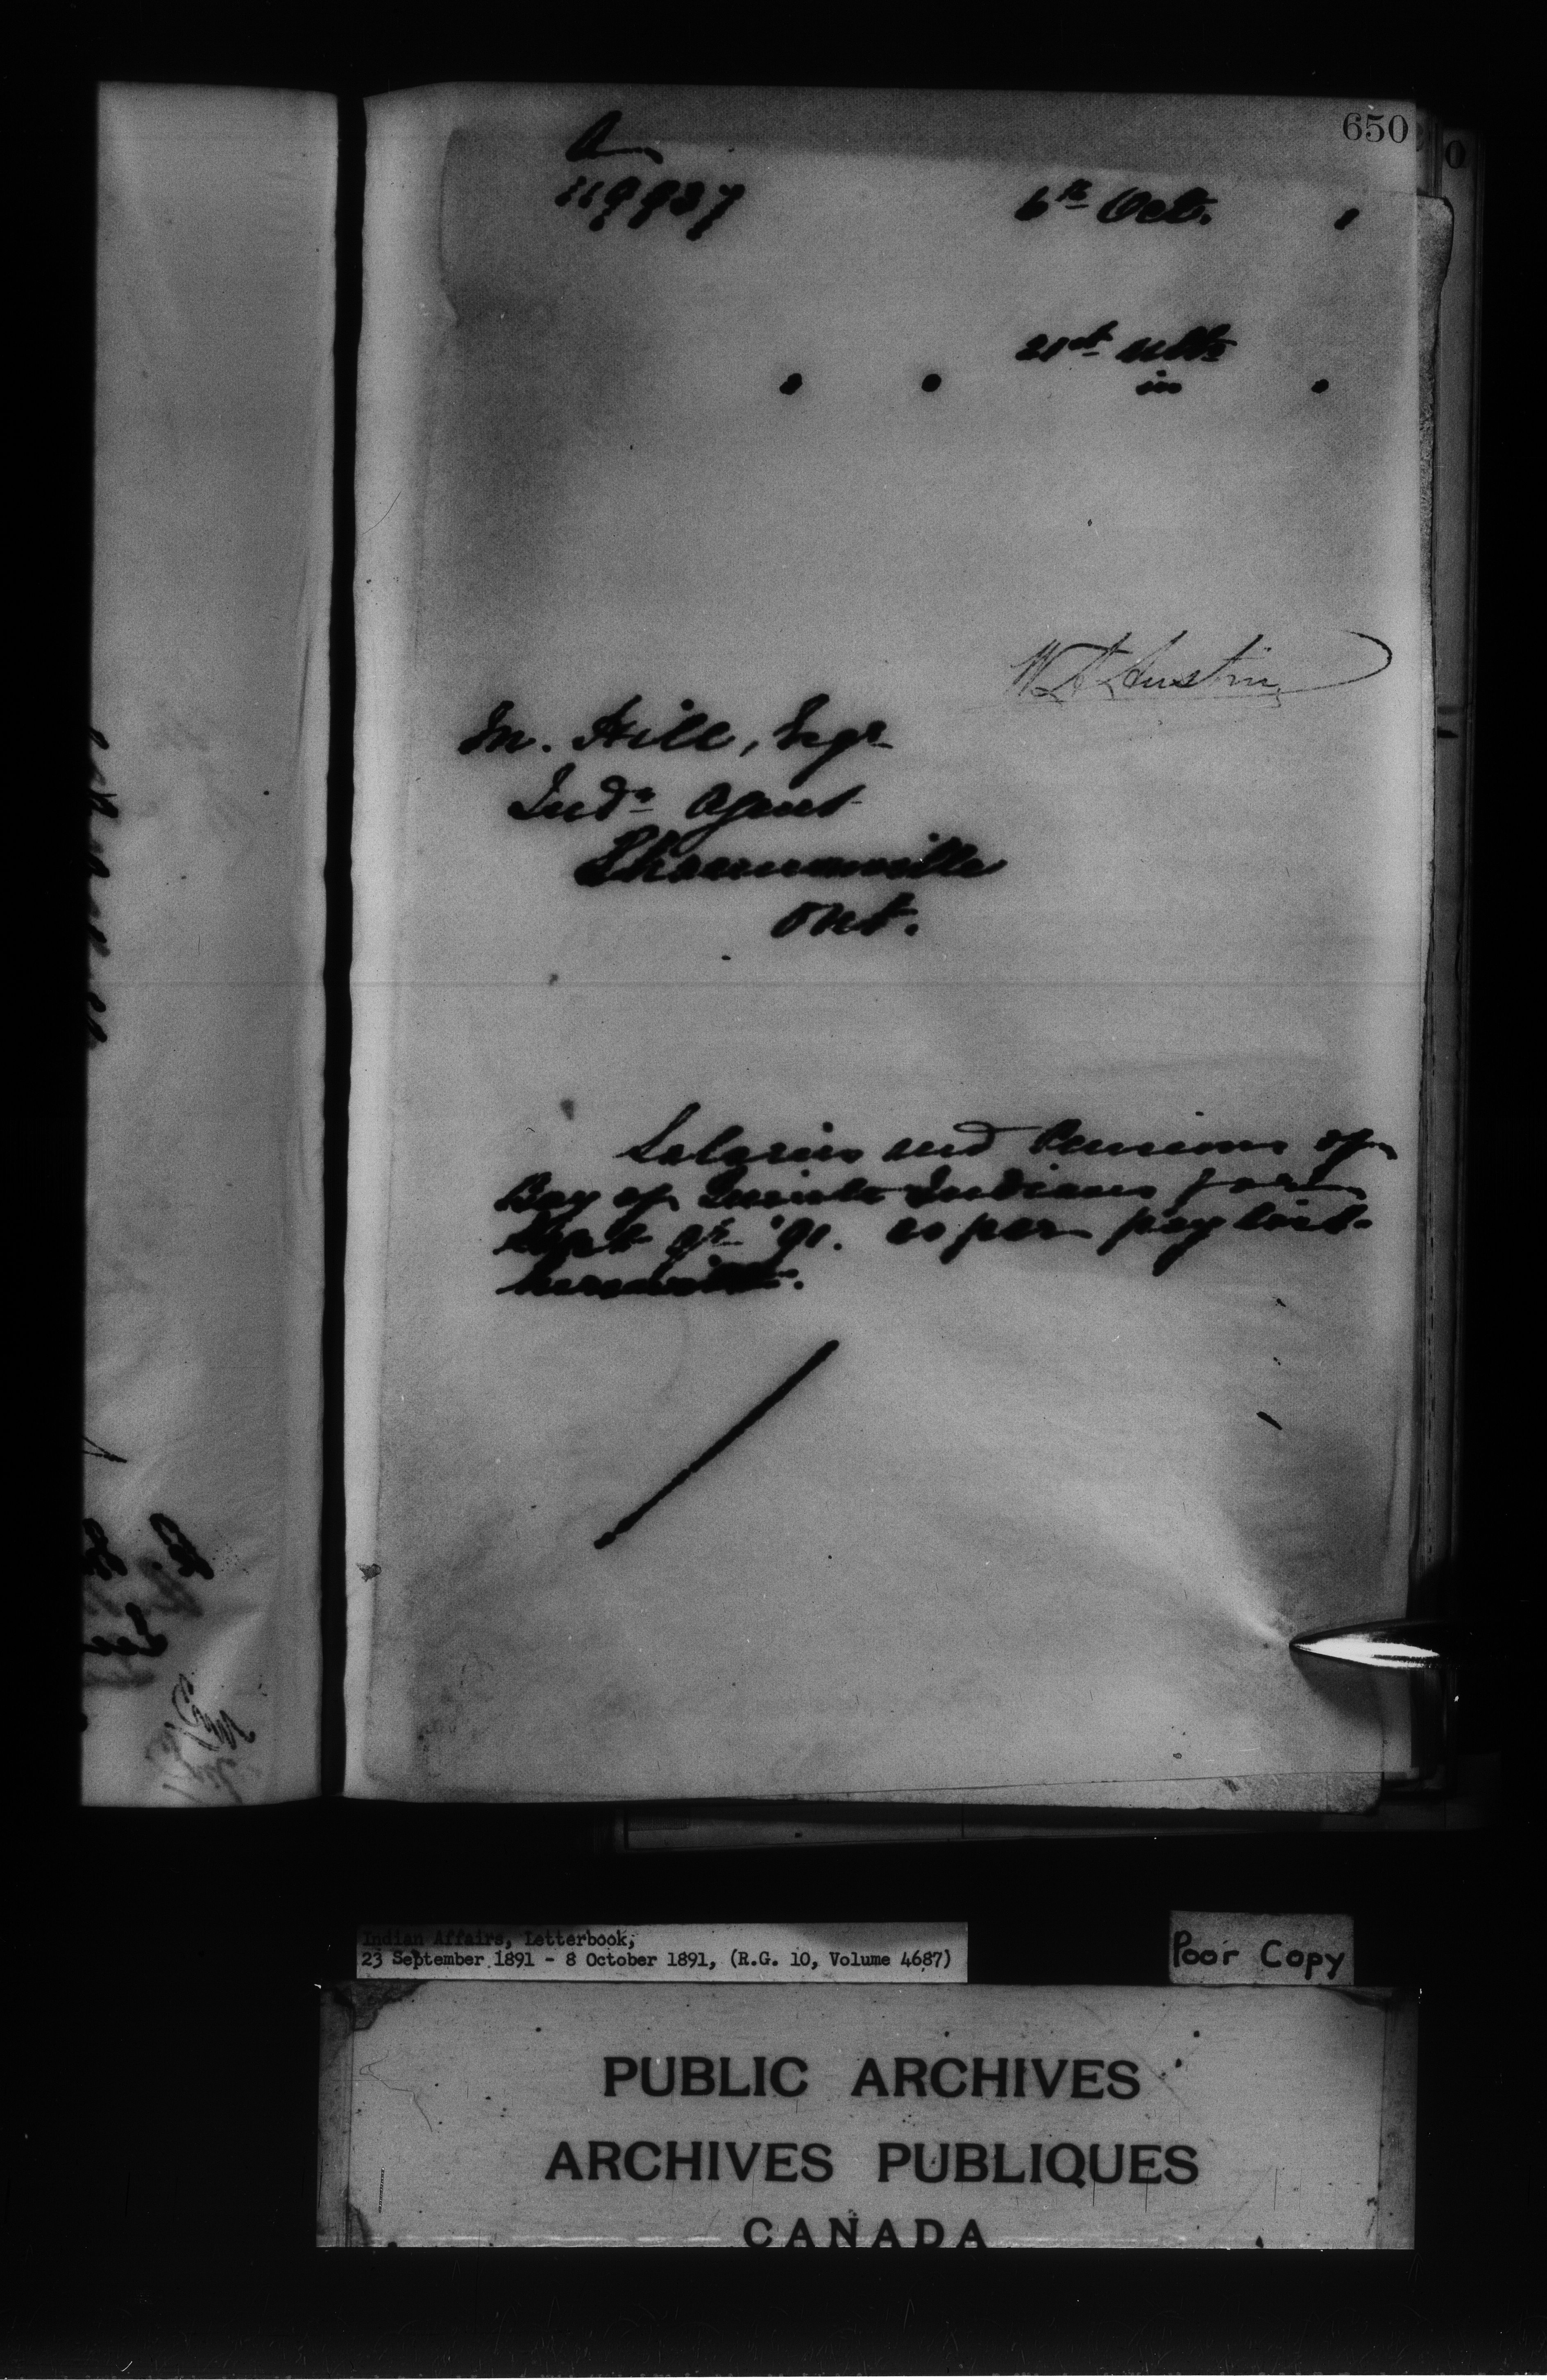 650
A
119937 6th Oct. 1
21st ulto
in
W A Austin
M. Hill, Esqr
Indn Agent
Shannonville
Ont.
Salaries and Pensions of
Bay of Quinte Indians for
Sept qr '91. as per pay list
herewith.
Indian Affairs, Letterbook,
23 September 1891 - 8 October 1891, (R.G. 10, Volume 4687)
Poor Copy
PUBLIC ARCHIVES
ARCHIVES PUBLIQUES
CANADA